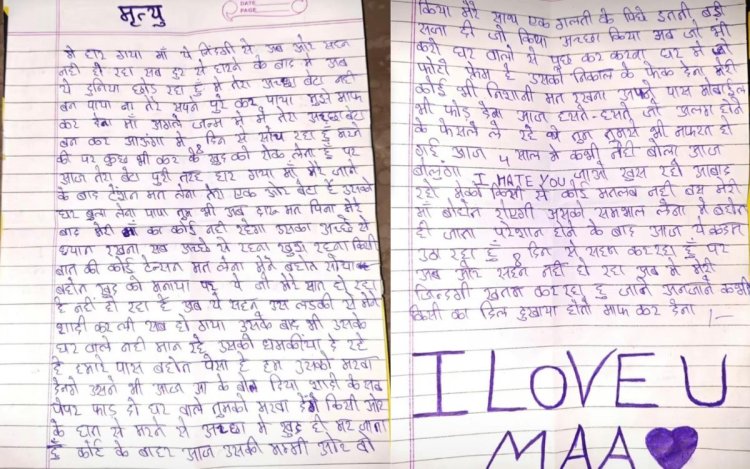 मृत्यु
DATE
PAGE
मे हार गया माँ ये जिंदगी से अब और सहन
नही हो रहा सब दुर से हारने के बाद मे अब
ये दुनिया छोड़ रहा हु मे तेरा अच्छा बेटा नही
बन पाया ना तेरे सपने पुरे कर पाया मुझे माफ
कर देना माँ अगले जन्म मे मे तेरा अच्छा बेटा
बन कर आऊंगा मे 8 दिन से सोच रहा हु मरने
की पर कुछ भी कर के खुद को रोक लेता हु पर
आज तेरा बेटा पुरी तरह हार गया माँ मेरे जाने
के बाद टेंशन मत लेना तेरा एक ओर बेटा है उसको
घर बुला लेना पापा तुम भी अब दारू मत पिना मेरे
बाद मेरी माँ का कोई नही रहेगा उसका अच्छे से
ध्यान रखना सब अच्छे से रहना खुश रहना किसी
बात की कोई टेन्सन मत लेना मेने बहोत सोचा
बहोत खुद को मनाया पर ये जो मेरे साथ हो रहा
है नहीं हो रहा है अब ये सहन उस लडकी से मेने
शादी कर ली सब हो गया उसके बाद भी उसके
घर वाले नही मान रहे उसकी धमकीया दे रहे
हे हमारे पास बहोत पैसा है हम उसको मरवा
देनगे उसने भी आज आ के बोल दिया शादी के सब
पेपर फाड़ दो घर वाले तुमको मरवा देंगे किसी ओर
के हात से मरने से अच्छा मे खुद ही मर जाता
हु कोर्ट के बाहर आज उसकी मम्मी ओर वो
किया मेरे साथ एक गलती के पिछे इतनी बड़ी
सजा दी जो किया अच्छा किया अब जो भी
करो घर वालो से पुछ कर करना घर मे जो
फोटो फ्रेम है उसको निकाल के फेक देना मेरी
कोई भी निशानी मत रखना अपने पास मोबाईल
भी फोड़ देना आज हसते-हसते जो अलग होने
के फेसले ले रहे थे तुम तुमसे भी नफरत हो
गई आज 4 साल मे कभी नही बोला आज
बोलुगा I HATE YOU जाओ खुस रहो आबाद
रहो मेको किसी से कोई मतलब नही बस मेरी
माँ बहोत रोएगी उसको समभाल लेना मे बहोत
ही जादा परेशान होने के बाद आज ये कदम
उठा रहा हु 8 दिन से सहन कर रहा हु पर
अब ओर सहन नही हो रहा अब मे मेरी
जिन्दगी खतम कर रहा हु जाने अनजाने कभी
किसी का दिल दुखाया होतो माफ कर देना
I LOVE U
MAA